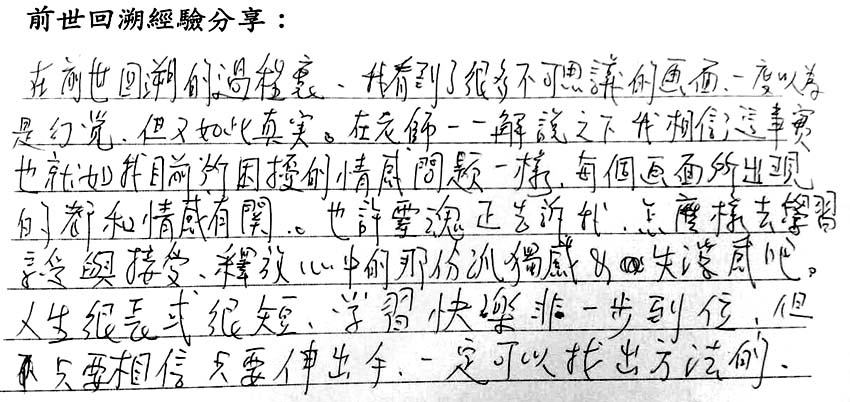 前世回溯經驗分享：
在前世回溯的過程裏、我看到了很多不可思議的画面、一度以為
是幻覚、但又如此真实。在老師一一解說之下我相信這事實
也就如我目前所困擾的情感問題一樣、每個画面所出現
的都和情感有関。也許靈魂正告訴我、怎麼樣去學習
享受與接受、釋放心中的那份孤獨感&失落感吧。
人生很長或很短、学習快樂非一步到位、但
只要相信只要伸出手、一定可以找出方法的、